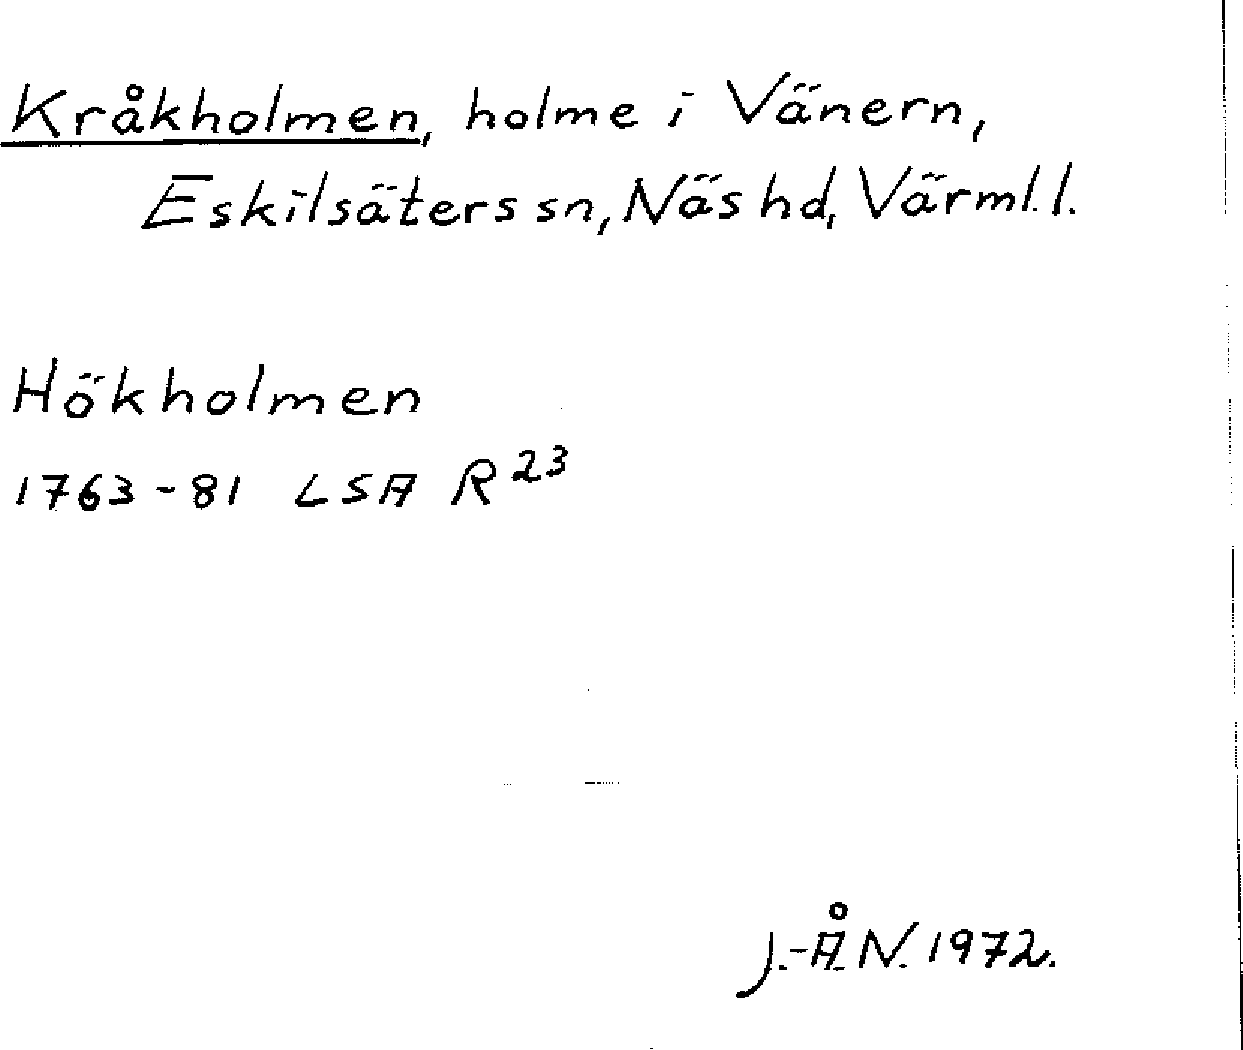 Kråkholmen, holme i Vänern,
Eskilsäters sn, Näs hd, Värml. l.
Hökholmen
1763-81 LSA R 23
J.-Å. N. 1972.